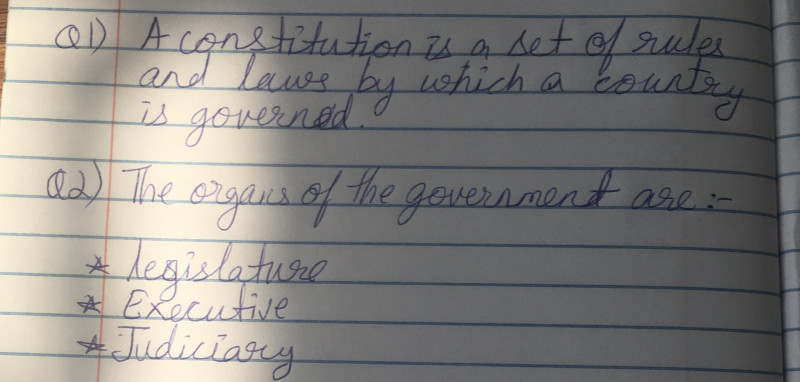 Q1) A constitution is a set of rules
and laws by which a country
is governed.
Q2) The organs of the government are :-
* Legislature
* Executive
* Judiciary